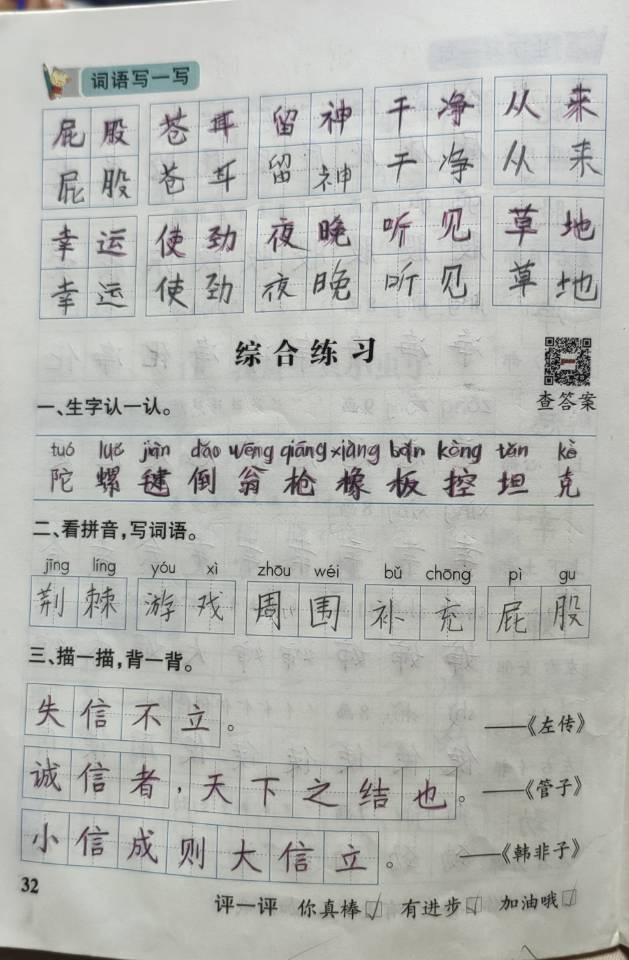 词语写一写
屁股 苍耳 留神 干净 从来
屁股 苍耳 留神 干净 从来
幸运 使劲 夜晚 听见 草地
幸运 使劲 夜晚 听见 草地
综合练习
查答案
一、生字认一认。
tuó luó jiàn dǎo wēng qiāng xiàng bǎn kòng tǎn kè
陀 螺 毽 倒 翁 枪 橡 板 控 坦 克
二、看拼音，写词语。
jīng líng yóu xì zhōu wéi bǔ chōng pì gu
荆棘 游戏 周围 补充 屁股
三、描一描，背一背。
失信不立。 ——《左传》
诚信者，天下之结也。 ——《管子》
小信成则大信立。 ——《韩非子》
32
评一评 你真棒☑ 有进步☑ 加油哦☑